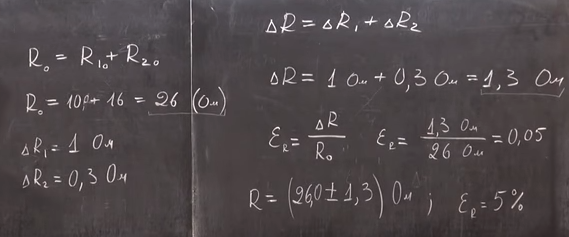 R₀ = R₁₀ + R₂₀
R₀ = 10 + 16 = 26 (Ом)
ΔR₁ = 1 Ом
ΔR₂ = 0,3 Ом
ΔR = ΔR₁ + ΔR₂
ΔR = 1 Ом + 0,3 Ом = 1,3 Ом
ε_R = ΔR / R₀ ε_R = 1,3 Ом / 26 Ом = 0,05
R = (26,0 ± 1,3) Ом ; ε_R = 5%